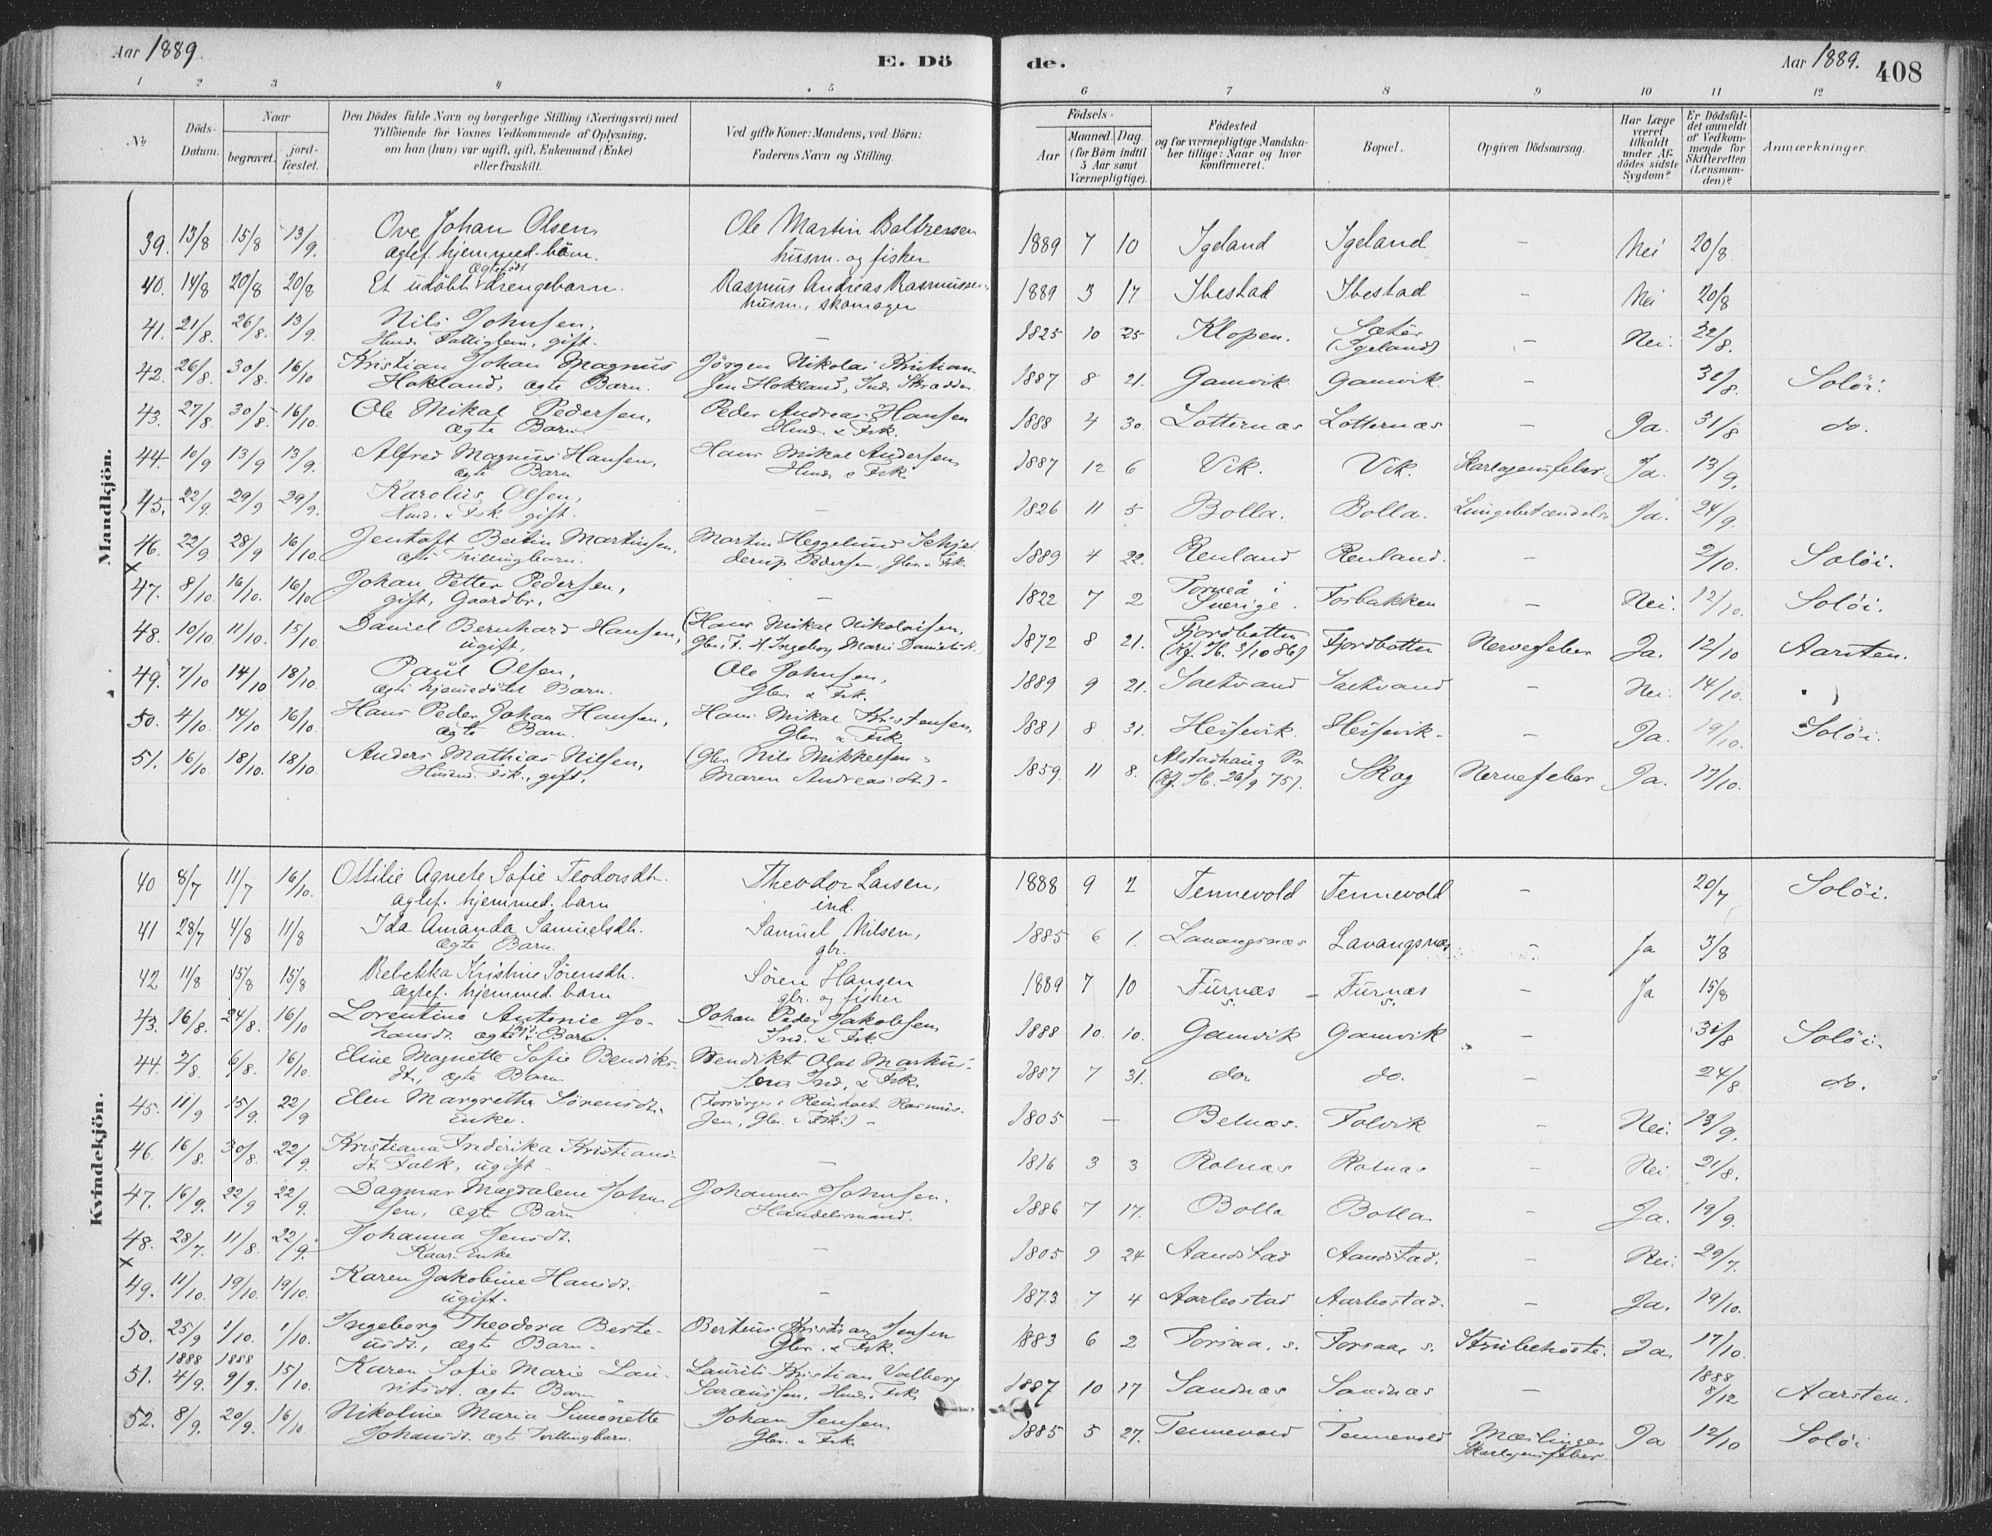 Aar 1889.
E. Dö
de.
Aar 1889.
408
1 2 3 4 5 6 7 8 9 10 11 12
No
Döds-
Datum.
Naar
begravet.
jord-
fæstet.
Den Dödes fulde Navn og borgerlige Stilling (Næringsvei) med
Tilföiende for Voxnes Vedkommende af Oplysning,
om han (hun) var ugift, gift, Enkemand (Enke)
eller fraskilt.
Ved gifte Koner: Mandens, ved Börn:
Faderens Navn og Stilling.
Födsels-
Aar
Maaned. Dag.
(for Börn indtil
5 Aar samt
Værnepligtige).
Födested
og for værnepligtige Mandska-
ber tillige: Naar og hvor
konfirmeret.
Bopæl.
Opgiven Dödsaarsag.
Har Læge
været
tilkaldt
under Af-
dödes sidste
Sygdom?
Er Dödsfal-
det anmeldt
af Vedkom-
mende for
Skifteretten
(Lensman-
den)?
Anmærkninger.
Mandkjön.
39. 13/8 15/8 13/9. Ove Johan Olsen, Ole Martin Baltzersen 1889 7 10 Igeland Igeland – Nei 20/8
ægtef. hjemmed. barn. husm. og fisker
40. 14/8 20/8 20/8 Et udöbt ægtefödt Drengebarn. Rasmus Andreas Rasmussen, 1889 3 17 Ibestad Ibestad – Nei 20/8
husm., skomager
41. 21/8. 26/8. 13/9. Nils Johnsen, – 1825 10 25 Klopen. Sæter (Igeland) – Nei. 22/8.
Husm. Fattiglem, gift.
42. 26/8. 30/8. 16/10 Kristian Johan Magnus Jörgen Nikolai Kristian- 1887 8 21. Gamvik Gamvik – 31/8 Solöi.
Hokland, ægte Barn. sen Hokland, Ind. Skrædder
43. 27/8 30/8. 16/10. Ole Mikal Pedersen, Peder Andreas Hansen 1888 4 30. Lotternæs Lotternæs – Ja. 31/8 do.
ægte Barn. Husm. & Fisk.
44. 10/9 13/9 13/9. Alfred Magnus Hansen, Hans Mikal Andersen, 1887 12 6 Vik. Vik. Skarlagensfeber Ja. 13/9.
ægte Barn Husm. & Fisk
45. 22/9. 29/9 29/9. Karolius Olsen, – 1826 11 5 Bolla. Bolla. Lungebetændelse Ja. 24/9.
Husm. & Fisk. gift.
46. 22/9 28/9 16/10. Jentoft Bertin Martinsen, Martin Heggelund Schjel- 1889 4 22. Renland Renland. – 2/10. Solöi.
ægte Tvillingbarn. derup Pedersen, Gbr. & Fisk
× 47. 8/10. 16/10. 16/10 Johan Petter Pedersen, – 1822 7 2 Torneå i Sverige. Fosbakken – Nei. 12/10. Solöi.
gift, Gaardbr.
48. 10/10. 11/10. 15/10 Daniel Bernhard Hansen, (Hans Mikal Nikolaisen, 1872 8 21. Fjordbotten Fjordbotten Nervefeber Ja. 12/10 Aarsten.
ugift, Gbr. F. H. Ingeborg Marie Danielsdt.) (Kf. Ib. 3/10 86)
49. 7/10 14/10 18/10. Paul Olsen, Ole Johnsen, 1889 9 21. Saltvand Saltvand – Nei. 14/10.
ægte hjemmedöbt Barn. Gbr. & Fisk.
50. 4/10. 14/10 16/10 Hans Peder Johan Hansen, Hans Mikal Kristensen, 1881 8 31. Heisevik. Heisevik. – Ja. 19/10. Solöi.
ægte Barn. Gbr. & Fisk
51. 16/10. 18/10. 18/10. Anders Mathias Nilsen, (Gbr. Nils Mikkelsen 1859. 11 8. Alstadhaug Pr. Skog Nervefeber Ja. 17/10.
Husm. Fisk., gift. Maren Andreasdt.) – (Kf. Ib. 26/9 75).
Kvindekjön.
40 8/7 11/7 16/10. Ottilie Agnete Sofie Teodorsdt. Theodor Larsen, 1888 9 2 Tennevold Tennevold – 20/7 Solöi.
ægtef. hjemmed. barn ind.
41 28/7 4/8 11/8 Ida Amanda Samuelsdt. Samuel Nilsen, 1885 6 1. Lavangsnæs Lavangsnæs – Ja 3/8
ægte Barn. gbr.
42 11/8 15/8 15/8 Rebekka Kristine Sörensdt. Sören Hansen 1889 7 10 Furnæs Furnæs – Ja 15/8
ægtef. hjemmed. barn gbr. og fisker
43. 16/8. 24/8. 16/10 Lorentine Antonie Jo- Johan Peder Jakobsen, 1888 10. 10. Gamvik Gamvik – 31/8 Solöi.
hansdt. ægte Barn. Ind. & Fisk.
44. 2/8. 6/8. 16/10. Eline Magnette Sofie Bendiks- Bendikt Olai Markus- 1887 7 31. do. do. – 24/8 do.
dt., ægte Barn sen Ind. & Fisk.
45. 11/9 15/9. 22/9 Elen Margrethe Sörensdt. (Forsörges Reinholt Rasmus- 1805 – Belnæs. Folvik – Nei. 13/9.
Enke. sen, Gbr. & Fisk.) –
46. 16/8. 30/8. 22/9. Kristiana Frederika Kristians- – 1816 3 3 Rolnæs Rolnæs – Nei 21/8.
dt. Falk, ugift
47. 16/9. 22/9 22/9. Dagmar Magdalene John- Johannes Johnsen, 1886 7 17. Bolla Bolla – Ja. 19/9.
sen, ægte Barn Handelsmand.
48. 28/7. 11/8. 22/9. Johanna Jensdt. – 1805 9 24 Aandstad Aandstad. – Nei. 29/7.
Kaar. Enke
× 49. 11/10. 19/10. 19/10. Karen Jakobine Hansdt. – 1873 7 4 Aarbostad Aarbostad. – Ja. 19/10.
ugift.
50. 25/9 1/10. 1/10. Ingeborg Theodora Berte- Berteus Kristian Jensen 1883 6 2 Forsaa, s. Forsaa, s. Strubehoste. Ja. 17/10.
usdt., ægte Barn. Gbr. & Fisk.
51. 1888 4/9. 1888 9/9. 15/10 Karen Sofie Marie Lau- Laurits Kristian Valberg 1887 10 17 Sandnæs Sandnæs – 1888 8/12 Aarsten.
ritsdt. ægte Barn Husm. Fisk
52. 8/9. 20/9. 16/10 Nikoline Maria Simonette Johan Jensen, 1885 5 27. Tennevold Tennevold Mæslinger Ja 12/10 Solöi
Johansdt. ægte Tvillingbarn. Gbr. & Fisk. Skarlagensfeber.